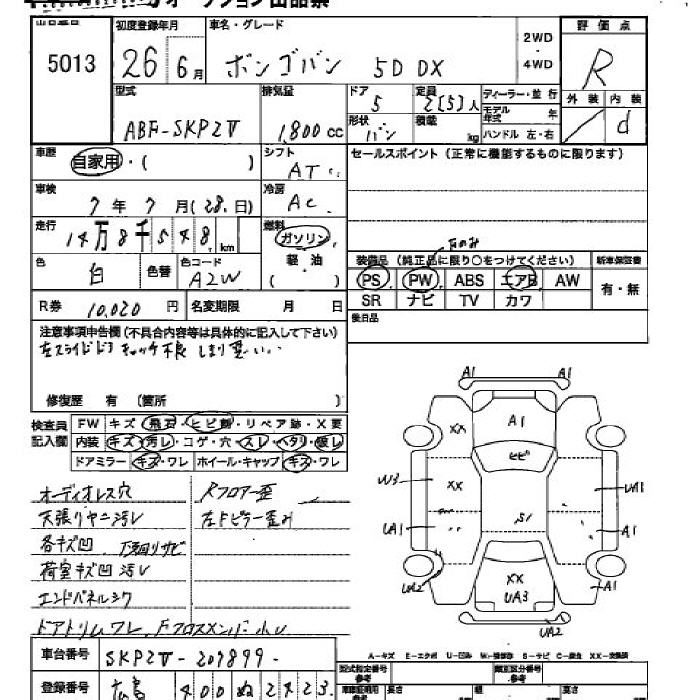 オークション出品票
出品番号 初度登録年月 車名・グレード 評価点
5013 26年6月 ボンゴバン 5D DX 2WD・4WD R
型式 排気量 ドア 定員 ディーラー・並行 外装 内装
ABF-SKP2V 1,800cc 5 2[5]人 モデル年式 年 d
形状 バン 積載 kg ハンドル 左・右
車歴 自家用・( ) シフト AT セールスポイント(正常に機能するものに限ります)
車検 7年7月(28日) 冷房 AC
走行 14万8千548km 燃料 ガソリン 軽油 ( )
色 白 色替 色コード A2W
装備品(純正品に限り○をつけてください) 新車保証書
PS PW ABS エアB AW 有・無
SR ナビ TV カワ
R券 10,020円 名変期限 月 日
後日品
注意事項申告欄(不具合内容等は具体的に記入して下さい)
左スライドドアキャッチ不良 しまり悪い
修復歴 有 (箇所 )
検査員記入欄 FW キズ・飛石・ヒビ割・リペア跡・X要
内装 キズ・汚レ・コゲ・穴・スレ・ヘタリ・破レ
ドアミラー キズ・ワレ ホイール・キャップ キズ・ワレ
オーディオレス穴 Rフロアー歪
天張リヤニ汚レ 左Fピラー歪み
各キズ凹 下廻リサビ
荷室キズ凹汚レ
エンドパネルシワ
ドアトリムワレ
A1 A1
XX A1
ヒビ
W3 XX UA1
UA1 S1 A1
UA2 XX A1
UA3
UA2
A-キズ E-エクボ U-凹み W-補修跡 S-サビ C-腐食 XX-交換済
車台番号 SKP2V-207899
型式指定番号 参考 類別区分番号 参考
登録番号 広島 400 ぬ 2423
長さ 幅 高さ